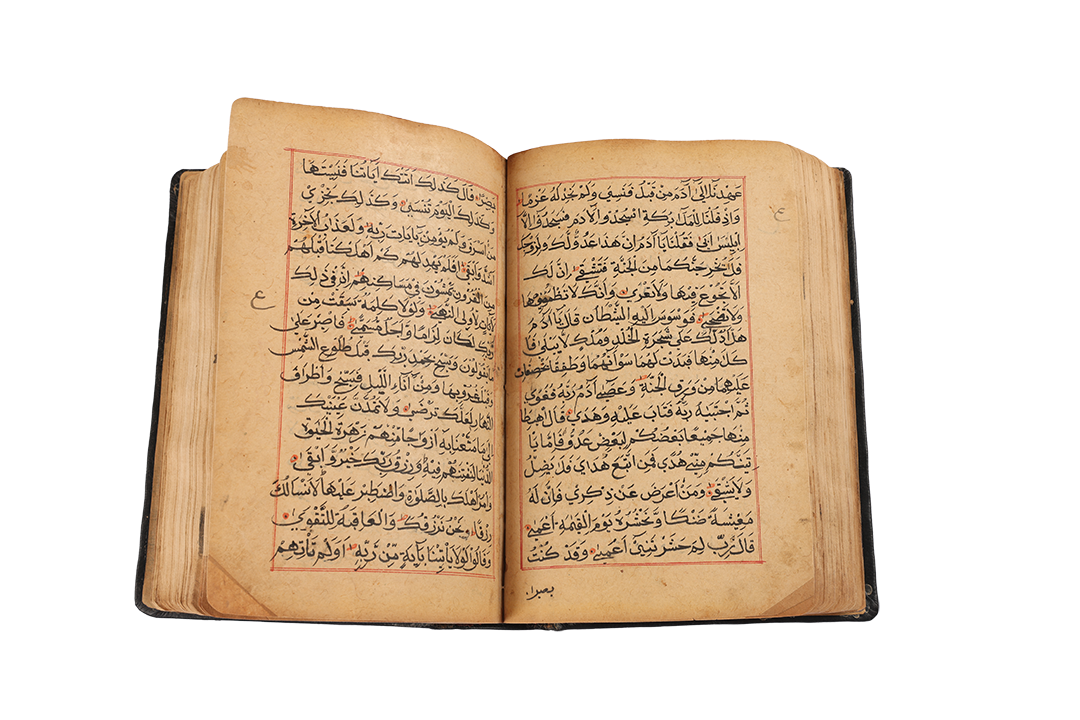 عَهِدْنَا اِلٰى آدَمَ مِنْ قَبْلُ فَنَسِيَ وَلَمْ نَجِدْ لَهُ عَزْمًا
وَاِذْ قُلْنَا لِلْمَلَآئِكَةِ اسْجُدُوا لِاٰدَمَ فَسَجَدُوا اِلَّا
اِبْلِيسَ اَبٰى فَقُلْنَا يَا آدَمُ اِنَّ هٰذَا عَدُوٌّ لَكَ وَلِزَوْجِكَ
فَلَا يُخْرِجَنَّكُمَا مِنَ الْجَنَّةِ فَتَشْقٰى اِنَّ لَكَ
اَلَّا تَجُوعَ فِيهَا وَلَا تَعْرٰى وَاَنَّكَ لَا تَظْمَؤُا فِيهَا
وَلَا تَضْحٰى فَوَسْوَسَ اِلَيْهِ الشَّيْطَانُ قَالَ يَا آدَمُ
هَلْ اَدُلُّكَ عَلٰى شَجَرَةِ الْخُلْدِ وَمُلْكٍ لَا يَبْلٰى فَاَ
كَلَا مِنْهَا فَبَدَتْ لَهُمَا سَوْآتُهُمَا وَطَفِقَا يَخْصِفَانِ
عَلَيْهِمَا مِنْ وَرَقِ الْجَنَّةِ وَعَصٰى آدَمُ رَبَّهُ فَغَوٰى
ثُمَّ اجْتَبٰيهُ رَبُّهُ فَتَابَ عَلَيْهِ وَهَدٰى قَالَ اهْبِطَا
مِنْهَا جَمِيعًا بَعْضُكُمْ لِبَعْضٍ عَدُوٌّ فَاِمَّا يَاْ
تِيَنَّكُمْ مِنِّي هُدًى فَمَنِ اتَّبَعَ هُدَايَ فَلَا يَضِلُّ
وَلَا يَشْقٰى وَمَنْ اَعْرَضَ عَنْ ذِكْرِي فَاِنَّ لَهُ
مَعِيشَةً ضَنْكًا وَنَحْشُرُهُ يَوْمَ الْقِيٰمَةِ اَعْمٰى
قَالَ رَبِّ لِمَ حَشَرْتَنِي اَعْمٰى وَقَدْ كُنْتُ
بصيرا
ع
بَصِيرًا قَالَ كَذٰلِكَ اَتَتْكَ آيَاتُنَا فَنَسِيتَهَا
وَكَذٰلِكَ الْيَوْمَ تُنْسٰى وَكَذٰلِكَ نَجْزِي
مَنْ اَسْرَفَ وَلَمْ يُؤْمِنْ بِآيَاتِ رَبِّهِ وَلَعَذَابُ الْآخِرَةِ
اَشَدُّ وَاَبْقٰى اَفَلَمْ يَهْدِ لَهُمْ كَمْ اَهْلَكْنَا قَبْلَهُمْ
مِنَ الْقُرُونِ يَمْشُونَ فِي مَسَاكِنِهِمْ اِنَّ فِي ذٰلِكَ
لَآيَاتٍ لِاُولِي النُّهٰى وَلَوْلَا كَلِمَةٌ سَبَقَتْ مِنْ
رَبِّكَ لَكَانَ لِزَامًا وَاَجَلٌ مُسَمًّى فَاصْبِرْ عَلٰى
مَا يَقُولُونَ وَسَبِّحْ بِحَمْدِ رَبِّكَ قَبْلَ طُلُوعِ الشَّمْسِ
وَقَبْلَ غُرُوبِهَا وَمِنْ آنَاءِ اللَّيْلِ فَسَبِّحْ وَاَطْرَافَ
النَّهَارِ لَعَلَّكَ تَرْضٰى وَلَا تَمُدَّنَّ عَيْنَيْكَ
اِلٰى مَا مَتَّعْنَا بِهِ اَزْوَاجًا مِنْهُمْ زَهْرَةَ الْحَيٰوةِ
الدُّنْيَا لِنَفْتِنَهُمْ فِيهِ وَرِزْقُ رَبِّكَ خَيْرٌ وَاَبْقٰى
وَاْمُرْ اَهْلَكَ بِالصَّلٰوةِ وَاصْطَبِرْ عَلَيْهَا لَا نَسْاَلُكَ
رِزْقًا نَحْنُ نَرْزُقُكَ وَالْعَاقِبَةُ لِلتَّقْوٰى
وَقَالُوا لَوْلَا يَاْتِينَا بِآيَةٍ مِنْ رَبِّهِ اَوَلَمْ تَاْتِهِمْ
ع